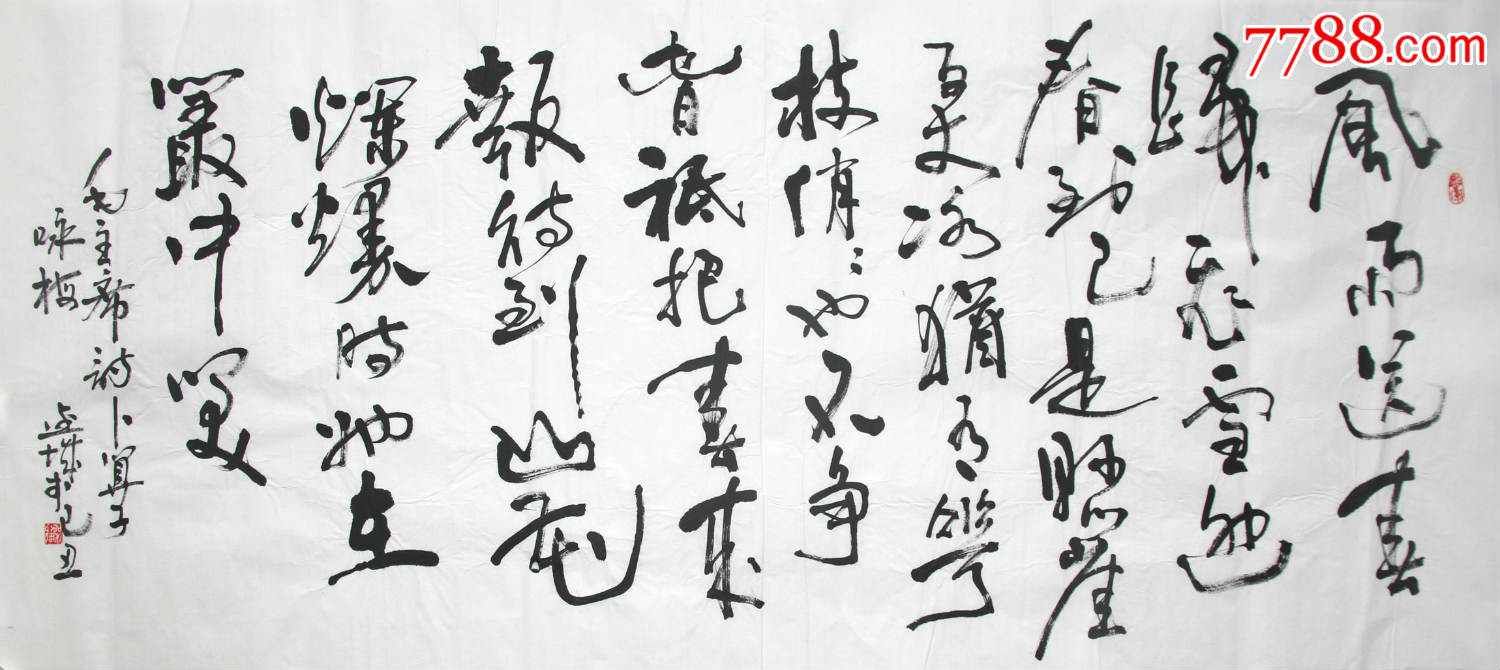 7788.com
風雨送春
歸飛雪迎
春到已是懸崖
百丈冰猶有花
枝俏〻也不争
春祇把春来
報待到山花
爛熳时她在
叢中笑
毛主席詩卜算子
咏梅
己丑